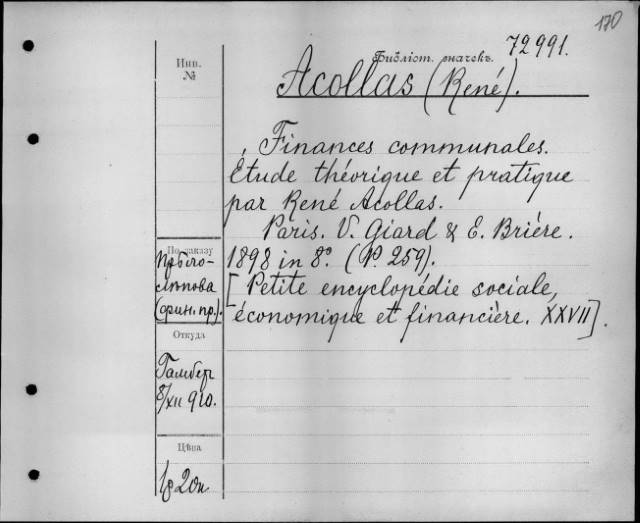 170
72991.
Библіот. значекъ.
Acollas (René).
Finances communales.
Étude théorique et pratique
par René Acollas.
Paris. V. Giard & E. Brière.
1898 in 8º. (P. 259).
[Petite encyclopédie sociale,
économique et financière. XXVII].
Инв.
№
По заказу
(фин. пр.).
Откуда
8/XII 910.
Цѣна
1р 20к